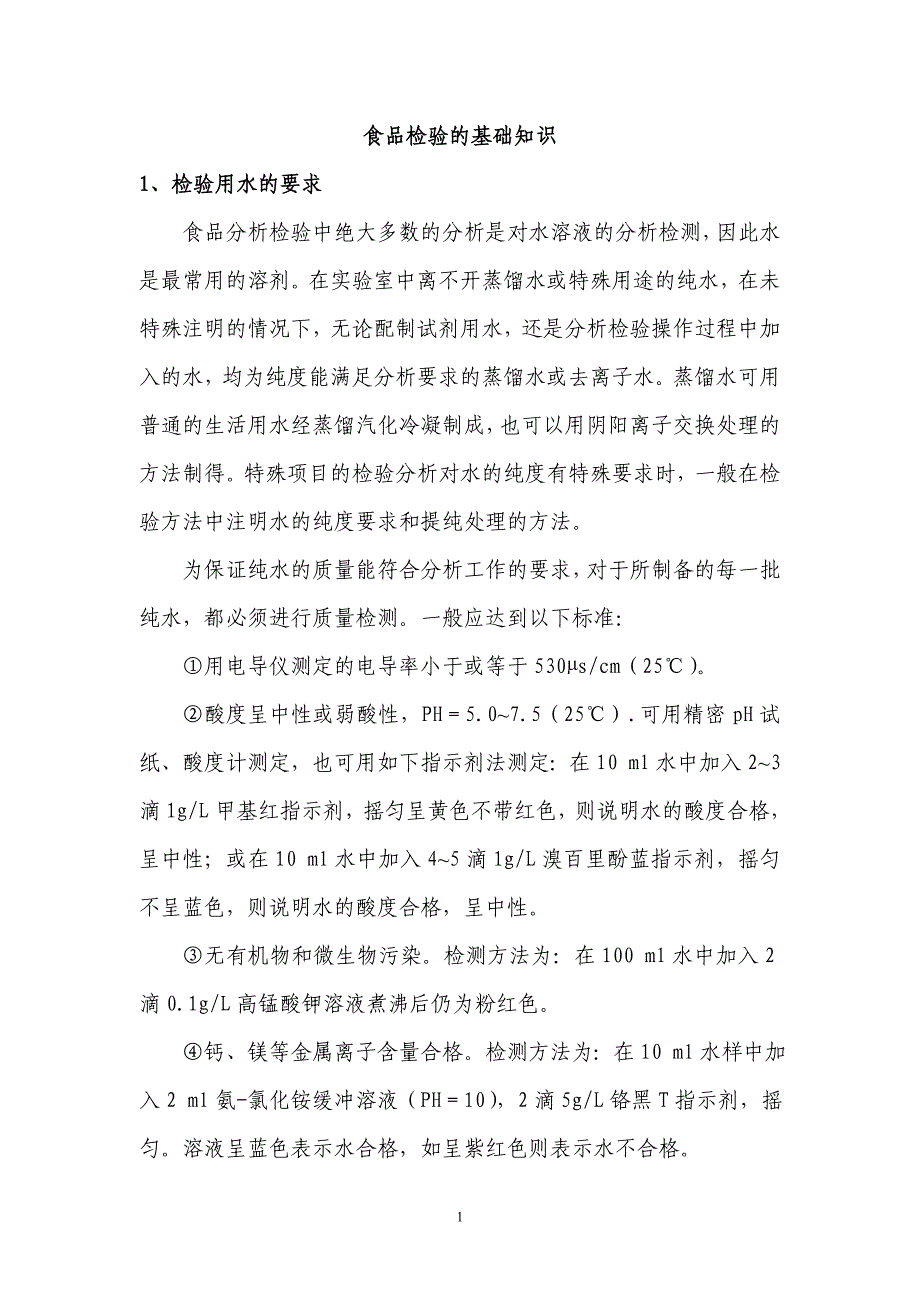 食品检验的基础知识
1、检验用水的要求
食品分析检验中绝大多数的分析是对水溶液的分析检测，因此水
是最常用的溶剂。在实验室中离不开蒸馏水或特殊用途的纯水，在未
特殊注明的情况下，无论配制试剂用水，还是分析检验操作过程中加
入的水，均为纯度能满足分析要求的蒸馏水或去离子水。蒸馏水可用
普通的生活用水经蒸馏汽化冷凝制成，也可以用阴阳离子交换处理的
方法制得。特殊项目的检验分析对水的纯度有特殊要求时，一般在检
验方法中注明水的纯度要求和提纯处理的方法。
为保证纯水的质量能符合分析工作的要求，对于所制备的每一批
纯水，都必须进行质量检测。一般应达到以下标准：
①用电导仪测定的电导率小于或等于530μs/cm（25℃）。
②酸度呈中性或弱酸性，PH＝5.0~7.5（25℃）.可用精密pH试
纸、酸度计测定，也可用如下指示剂法测定：在10 ml水中加入2~3
滴1g/L甲基红指示剂，摇匀呈黄色不带红色，则说明水的酸度合格，
呈中性；或在10 ml水中加入4~5滴1g/L溴百里酚蓝指示剂，摇匀
不呈蓝色，则说明水的酸度合格，呈中性。
③无有机物和微生物污染。检测方法为：在100 ml水中加入2
滴0.1g/L高锰酸钾溶液煮沸后仍为粉红色。
④钙、镁等金属离子含量合格。检测方法为：在10 ml水样中加
入2 ml氨-氯化铵缓冲溶液（PH＝10），2滴5g/L铬黑T指示剂，摇
匀。溶液呈蓝色表示水合格，如呈紫红色则表示水不合格。
1